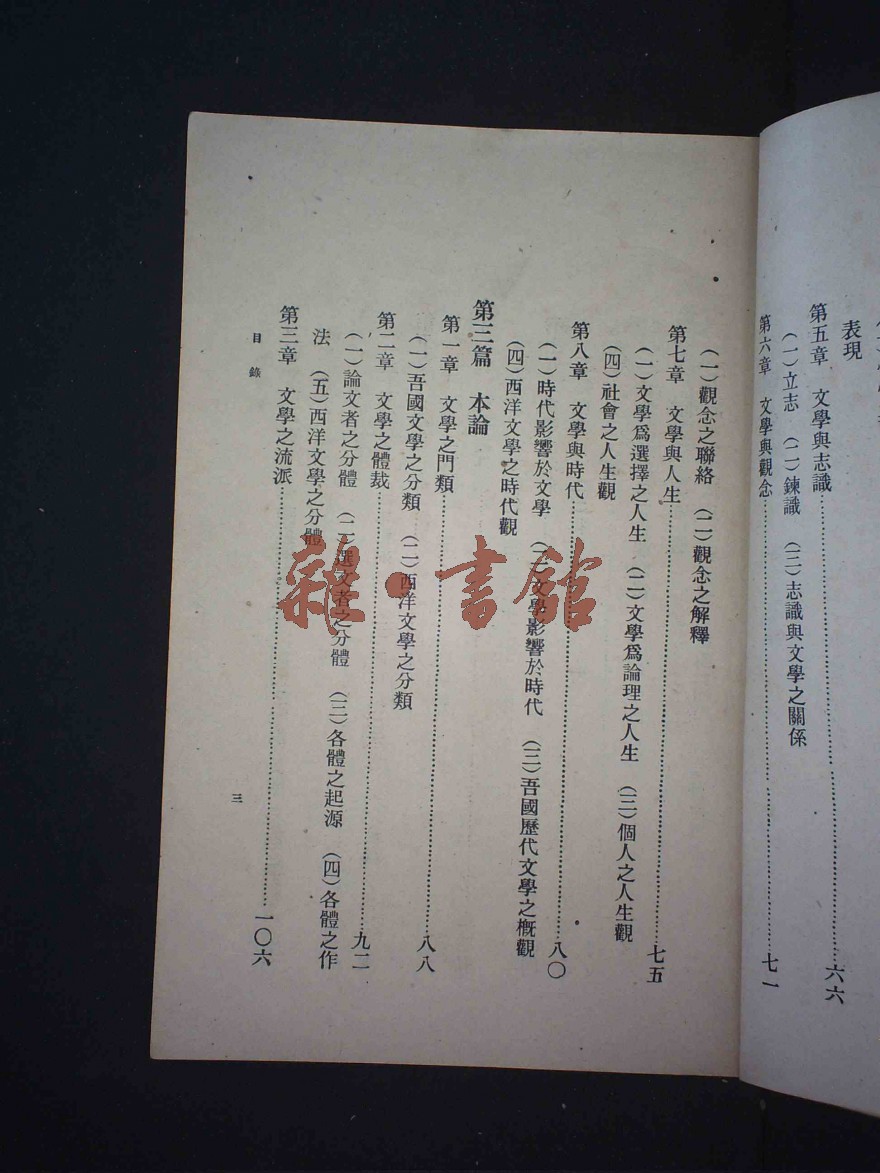 表現
第五章　文學與志識……六六
（一）立志　（二）鍊識　（三）志識與文學之關係
第六章　文學與觀念……七一
（一）觀念之聯絡　（二）觀念之解釋
第七章　文學與人生……七五
（一）文學爲選擇之人生　（二）文學爲論理之人生　（三）個人之人生觀
（四）社會之人生觀
第八章　文學與時代……八〇
（一）時代影響於文學　（二）文學影響於時代　（三）吾國歷代文學之槪觀
（四）西洋文學之時代觀
第三篇　本論
第一章　文學之門類……八八
（一）吾國文學之分類　（二）西洋文學之分類
第二章　文學之體裁……九二
（一）論文者之分體　（二）選文者之分體　（三）各體之起源　（四）各體之作
法　（五）西洋文學之分體
第三章　文學之流派……一〇六
目錄
三
雜·書館